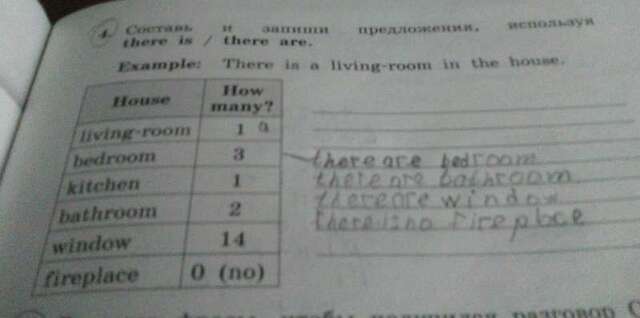 4. Составь и запиши предложения, используя
there is / there are.
Example: There is a living-room in the house.
House How many?
living-room 1 a
bedroom 3
kitchen 1
bathroom 2
window 14
fireplace 0 (no)
there are bedroom
there are bathroom
there are window
there is no fireplace
чтобы получился разговор